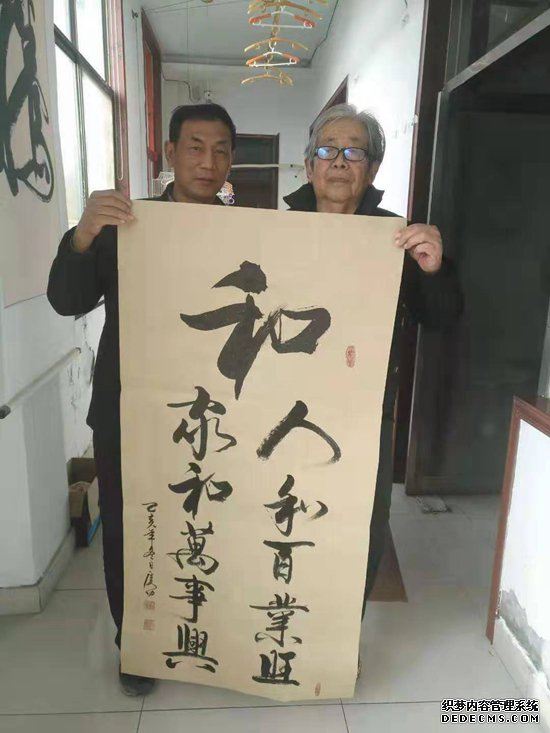 和
人和百業旺
家和萬事興
己亥年冬月
织梦内容管理系统
DEDECMS.COM